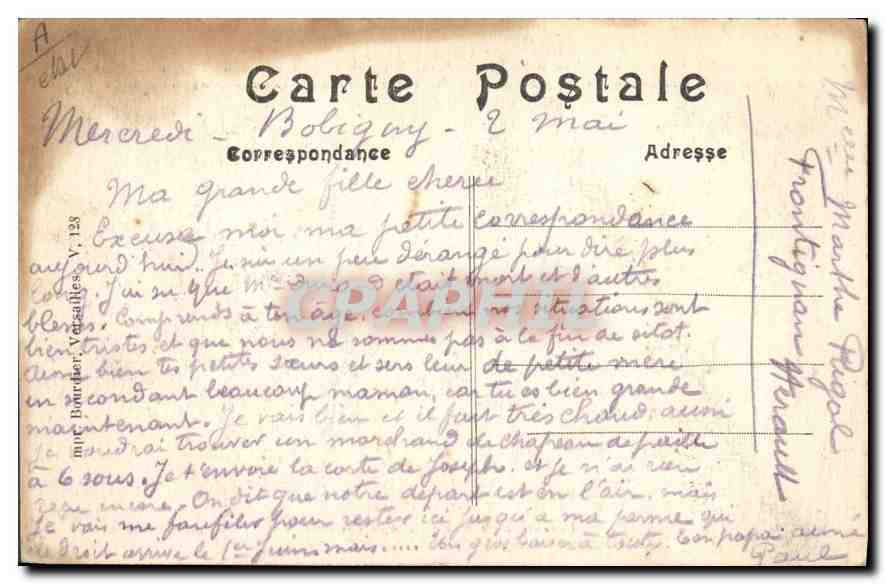 A
Carte Postale
Mercredi - Bobigny - 2 Mai
Correspondance
Adresse
Ma grande fille cherie
Excuse moi ma petite correspondance
aujourd'hui. Je suis un peu dérangé pour dire plus
long. J'ai su que était mort et d'autres
blessés. Comprends à ton age combien nos situations sont
bien tristes et que nous ne sommes pas à la fin de sitot.
Aime bien tes petites sœurs et sers leur de petite mère
en secondant beaucoup maman, car tu es bien grande
maintenant. Je vais bien et il fait très chaud, aussi
je voudrai trouver un marchand de chapeau de paille
à 6 sous. Je t'envoie la carte de Joseph et je n'ai rien
reçu encore. On dit que notre départ est en l'air, mais
je vais me faufiler pour rester ici jusqu'a ma perme qui
droit arrive le 1er juin mais..... gros baiser à toutes. Ton papa aimé
Paul
Melle Marthe Rigal
Frontignan Herault
impr. Bourdier, Versailles V, 128
CPAPHIL